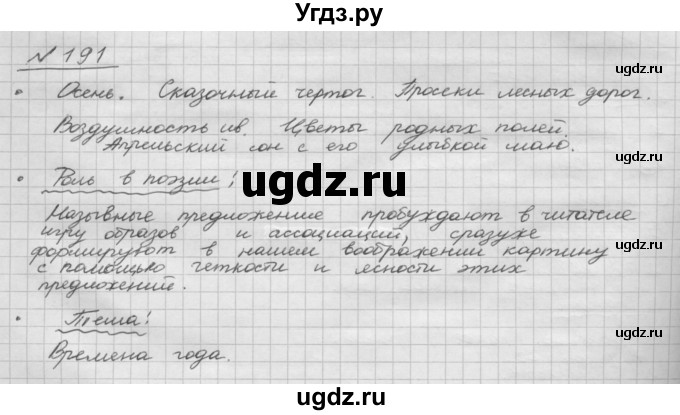 Угдз.ру
№ 191
ugdz.ru
• Осень. Сказочный чертог. Просеки лесных дорог.
Воздушность ив. Цветы родных полей.
ugdz.ru
Апрельский сон с его улыбкой маю.
• Роль в поэзии!
ugdz.ru
ugdz.ru
Назывные предложение пробуждают в читателе
игру образов и ассоциаций, сразуже
ugdz.ru
формируют в нашем воображении картину
с помощью четкости и ясности этих
предложений.
ugdz.ru
• Тема!
ugdz.ru
Времена года.
ugdz.ru